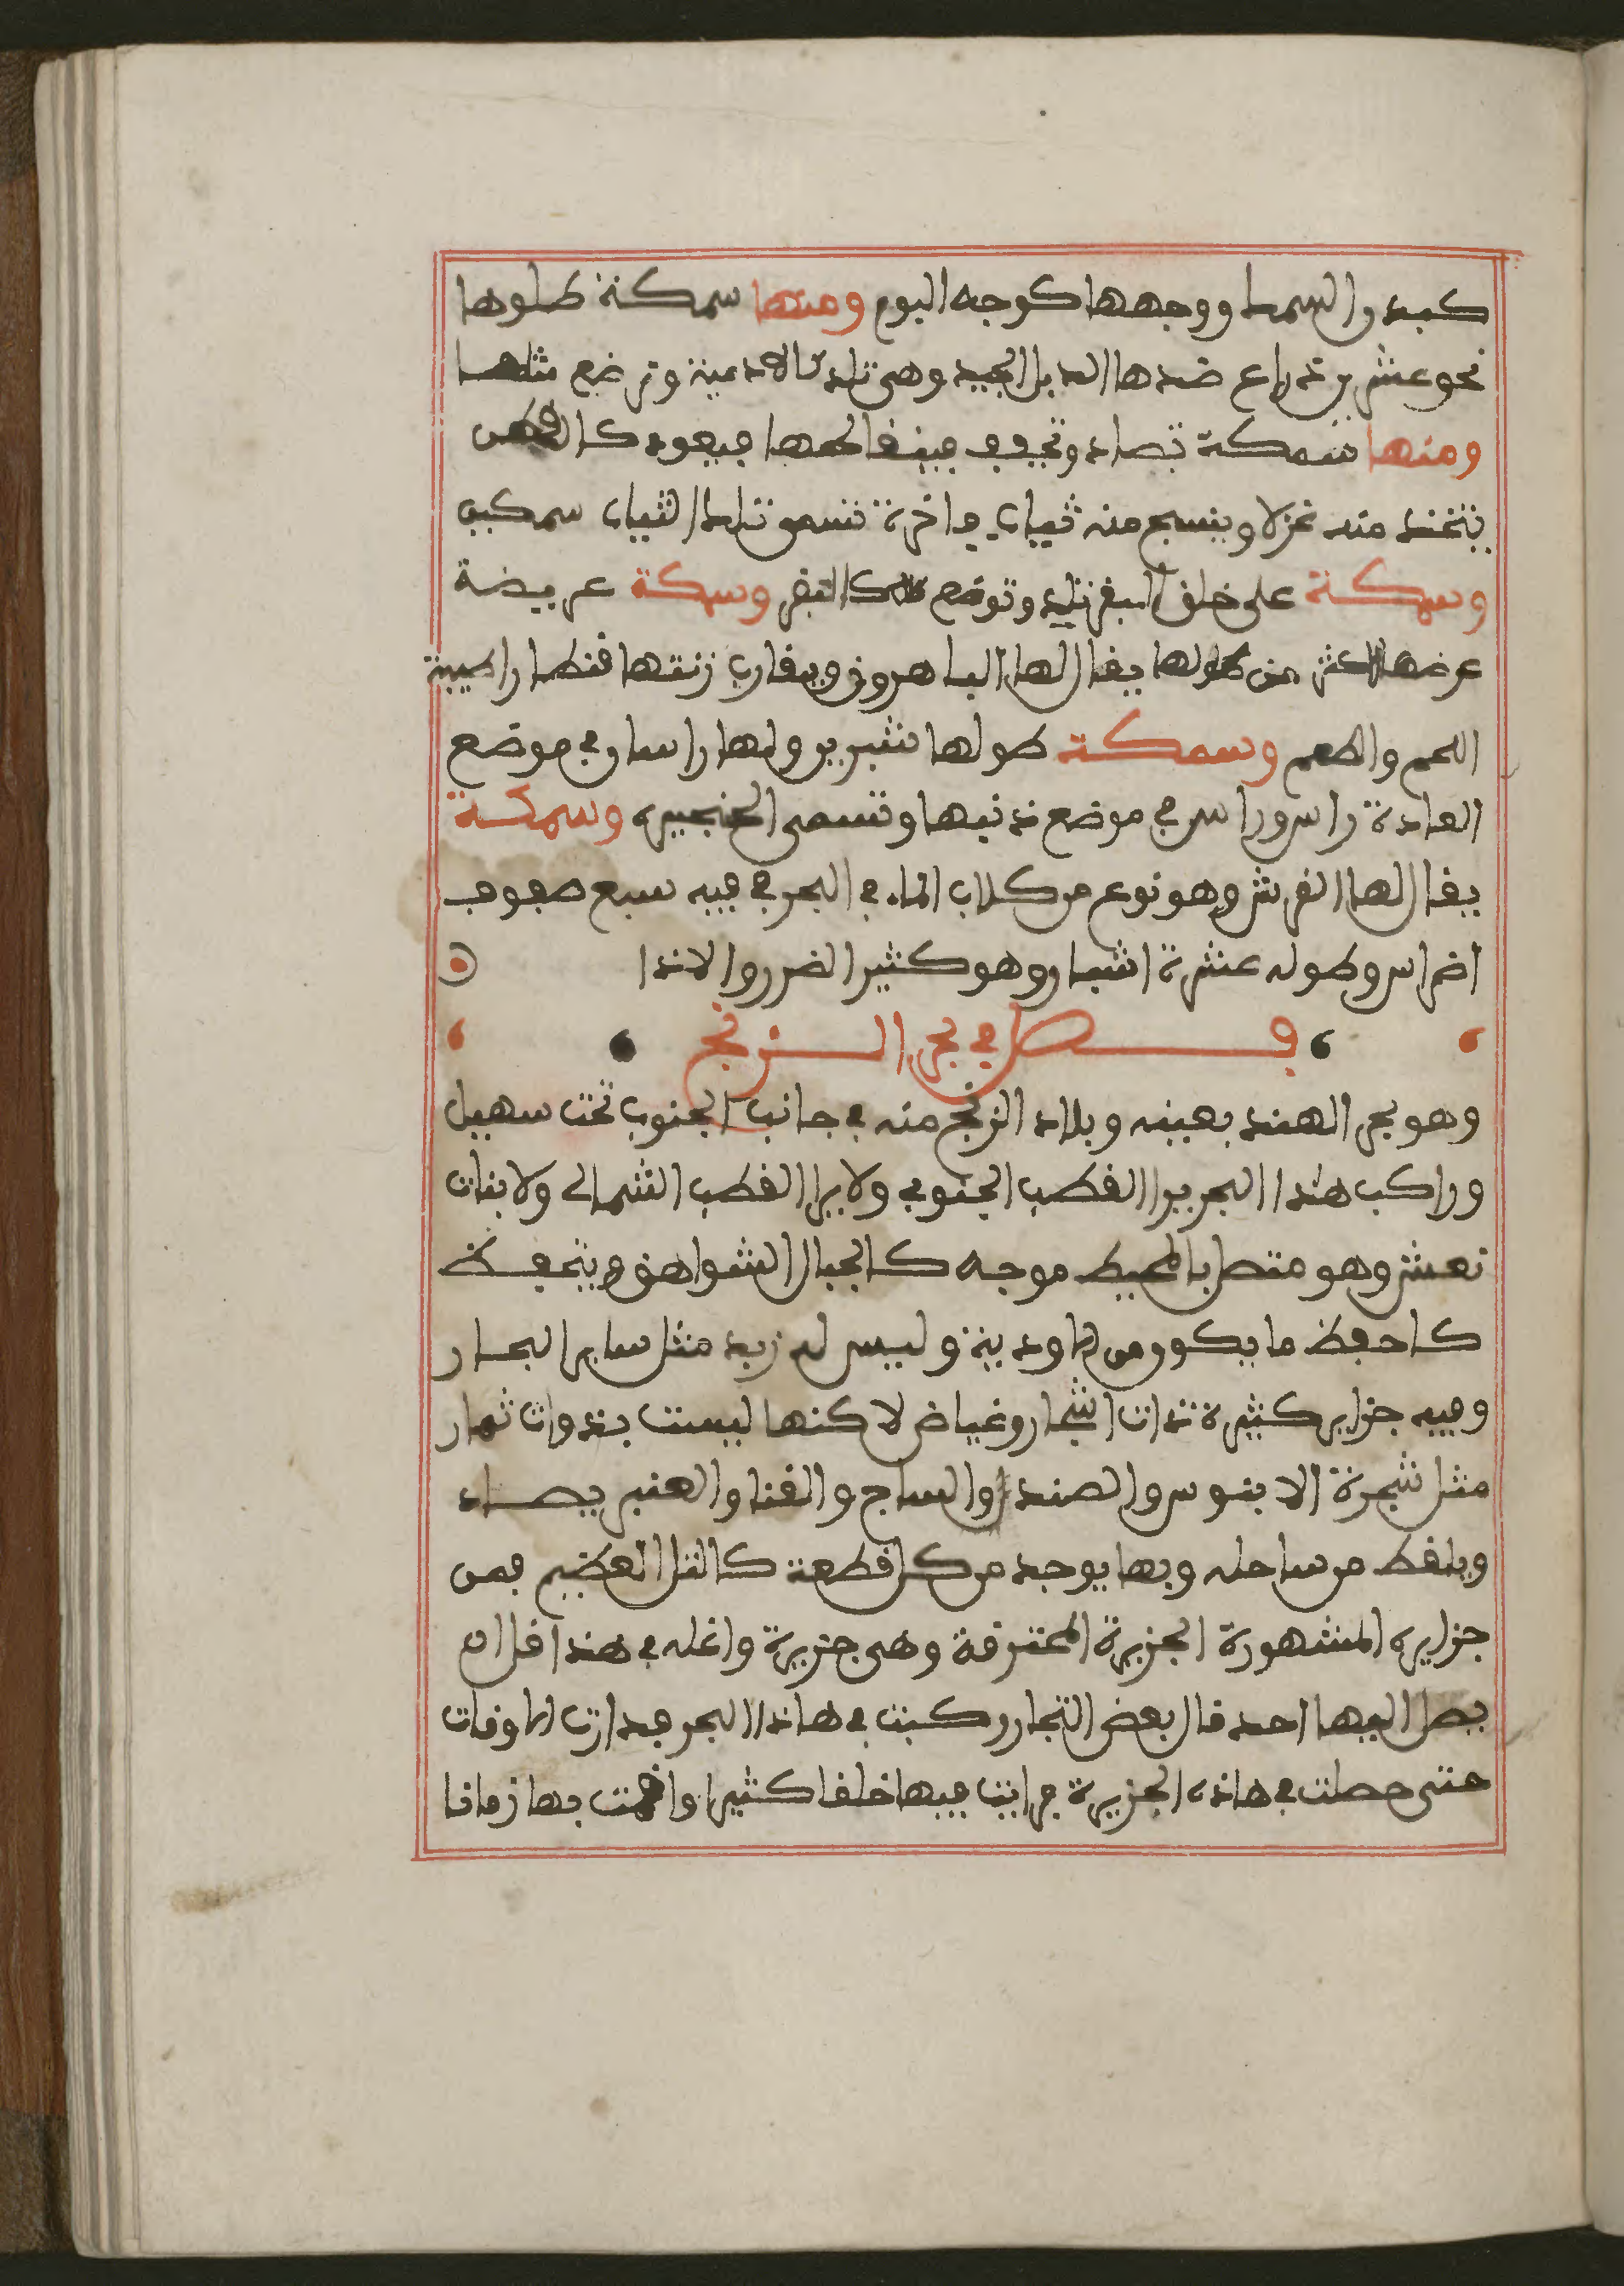 كبدن السمك ووجهها كوجه البوم ومنها سمكة طلوها
نحو عشرين ذراع ضدها الدبل الجيد وهي تلد كالادمية وترضع مثلها
ومنها سمكة تصاد وتجفف فينفا لحمها فيعود كالقطن
يتخذ منه غزلا وينسج منه ثياب فاخرة تسمى تلك الثياب سمكين
وسمكة على خلق البقر تلد وترضع كالبقر وسمكة عريضة
عرضها اكثر من طولها يقال لها البـاهرون ويقارب زنتها قنطارا طيبة
اللحم والطعم وسمكة طولها شبرين ولها راسان في موضع
العادة راس وراس في موضع ذنبها وتسمى الخنجيره وسمكة
يقال لها القرش وهو نوع من كلاب الماء في البحر في فيه سبع صفوف
اضراس وطوله عشرة اشبار وهو كثير الضرر والاذا
فصل في بحر الزنج
وهو بحر الهند بعينه وبلاد الزنج منه في جانب الجنوب تحت سهيل
وراكب هذا البحر يرا القطب الجنوبي ولا يرا القطب الشمالي ولا بنات
نعش وهو متصل بالمحيط موجه كالجبال الشواهق وينخفض
كاحفظ ما يكون من الاودية وليس له زبد مثل ساير البحار
وفيه جزاير كثيرة ذات اشجار وغياض لاكنها ليست بذوات ثمار
مثل شجرة الابنوس والصندل والساج والقنا والعنبر يصاد
ويلقط من ساحله وبها يوجد من كل قطعة كالتل العظيم فمن
جزايره المشهورة الجزيرة المحترقة وهي جزيرة واغله في هذا قل ان
يصل اليها احد قال بعض التجار ركبت في هاذا البحر فدارت الاوقات
حتى حصلت في هاذه الجزيرة فرايت فيها خلقا كثيرا واقمت بها زمانا